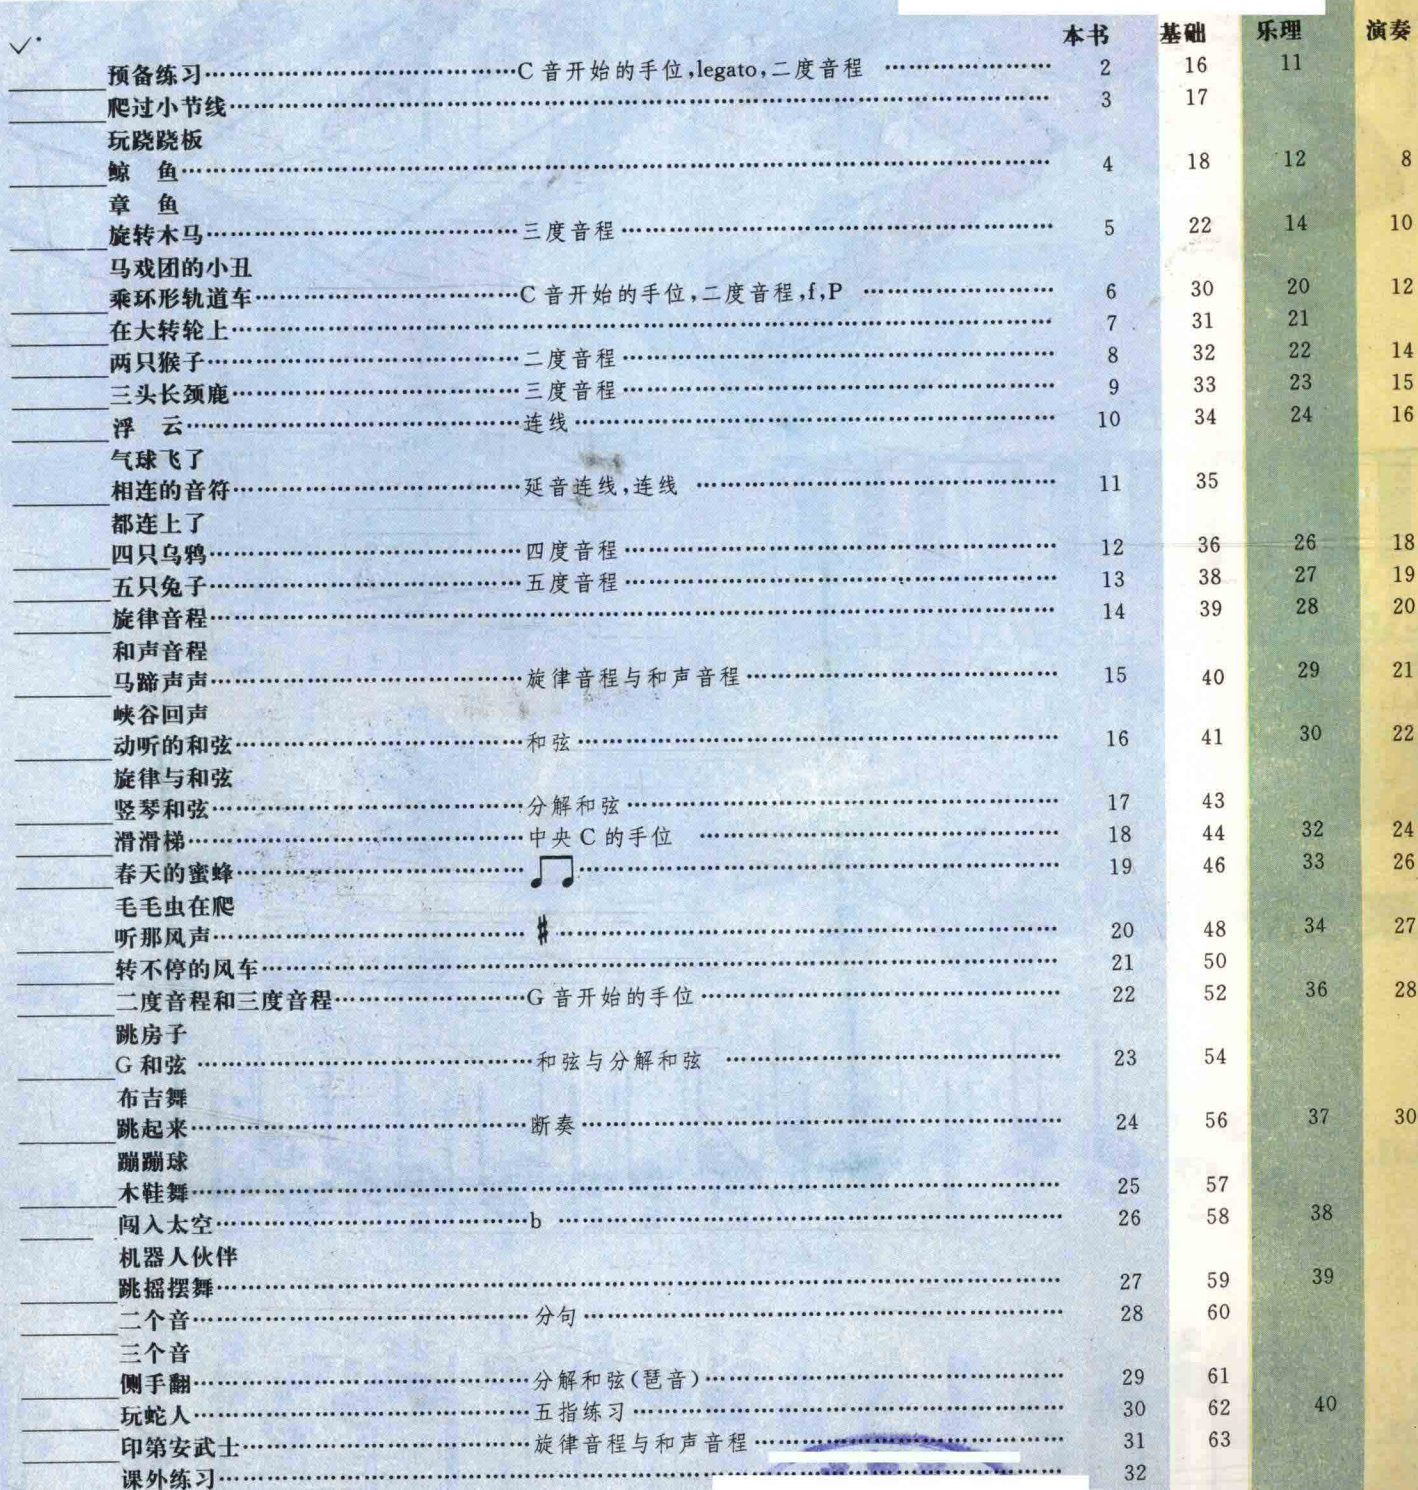 本书 基础 乐理 演奏
预备练习……………C 音开始的手位,legato,二度音程……………2 16 11
爬过小节线……………3 17
玩跷跷板
鲸 鱼……………4 18 12 8
章 鱼
旋转木马……………三度音程……………5 22 14 10
马戏团的小丑
乘环形轨道车……………C 音开始的手位,二度音程,f,P……………6 30 20 12
在大转轮上……………7 31 21
两只猴子……………二度音程……………8 32 22 14
三头长颈鹿……………三度音程……………9 33 23 15
浮 云……………连线……………10 34 24 16
气球飞了
相连的音符……………延音连线,连线……………11 35
都连上了
四只乌鸦……………四度音程……………12 36 26 18
五只兔子……………五度音程……………13 38 27 19
旋律音程……………14 39 28 20
和声音程
马蹄声声……………旋律音程与和声音程……………15 40 29 21
峡谷回声
动听的和弦……………和弦……………16 41 30 22
旋律与和弦
竖琴和弦……………分解和弦……………17 43
滑滑梯……………中央 C 的手位……………18 44 32 24
春天的蜜蜂……………♫……………19 46 33 26
毛毛虫在爬
听那风声……………♯……………20 48 34 27
转不停的风车……………21 50
二度音程和三度音程……………G 音开始的手位……………22 52 36 28
跳房子
G 和弦……………和弦与分解和弦……………23 54
布吉舞
跳起来……………断奏……………24 56 37 30
蹦蹦球
木鞋舞……………25 57
闯入太空……………b……………26 58 38
机器人伙伴
跳摇摆舞……………27 59 39
二个音……………分句……………28 60
三个音
侧手翻……………分解和弦(琶音)……………29 61
玩蛇人……………五指练习……………30 62 40
印第安武士……………旋律音程与和声音程……………31 63
课外练习……………32